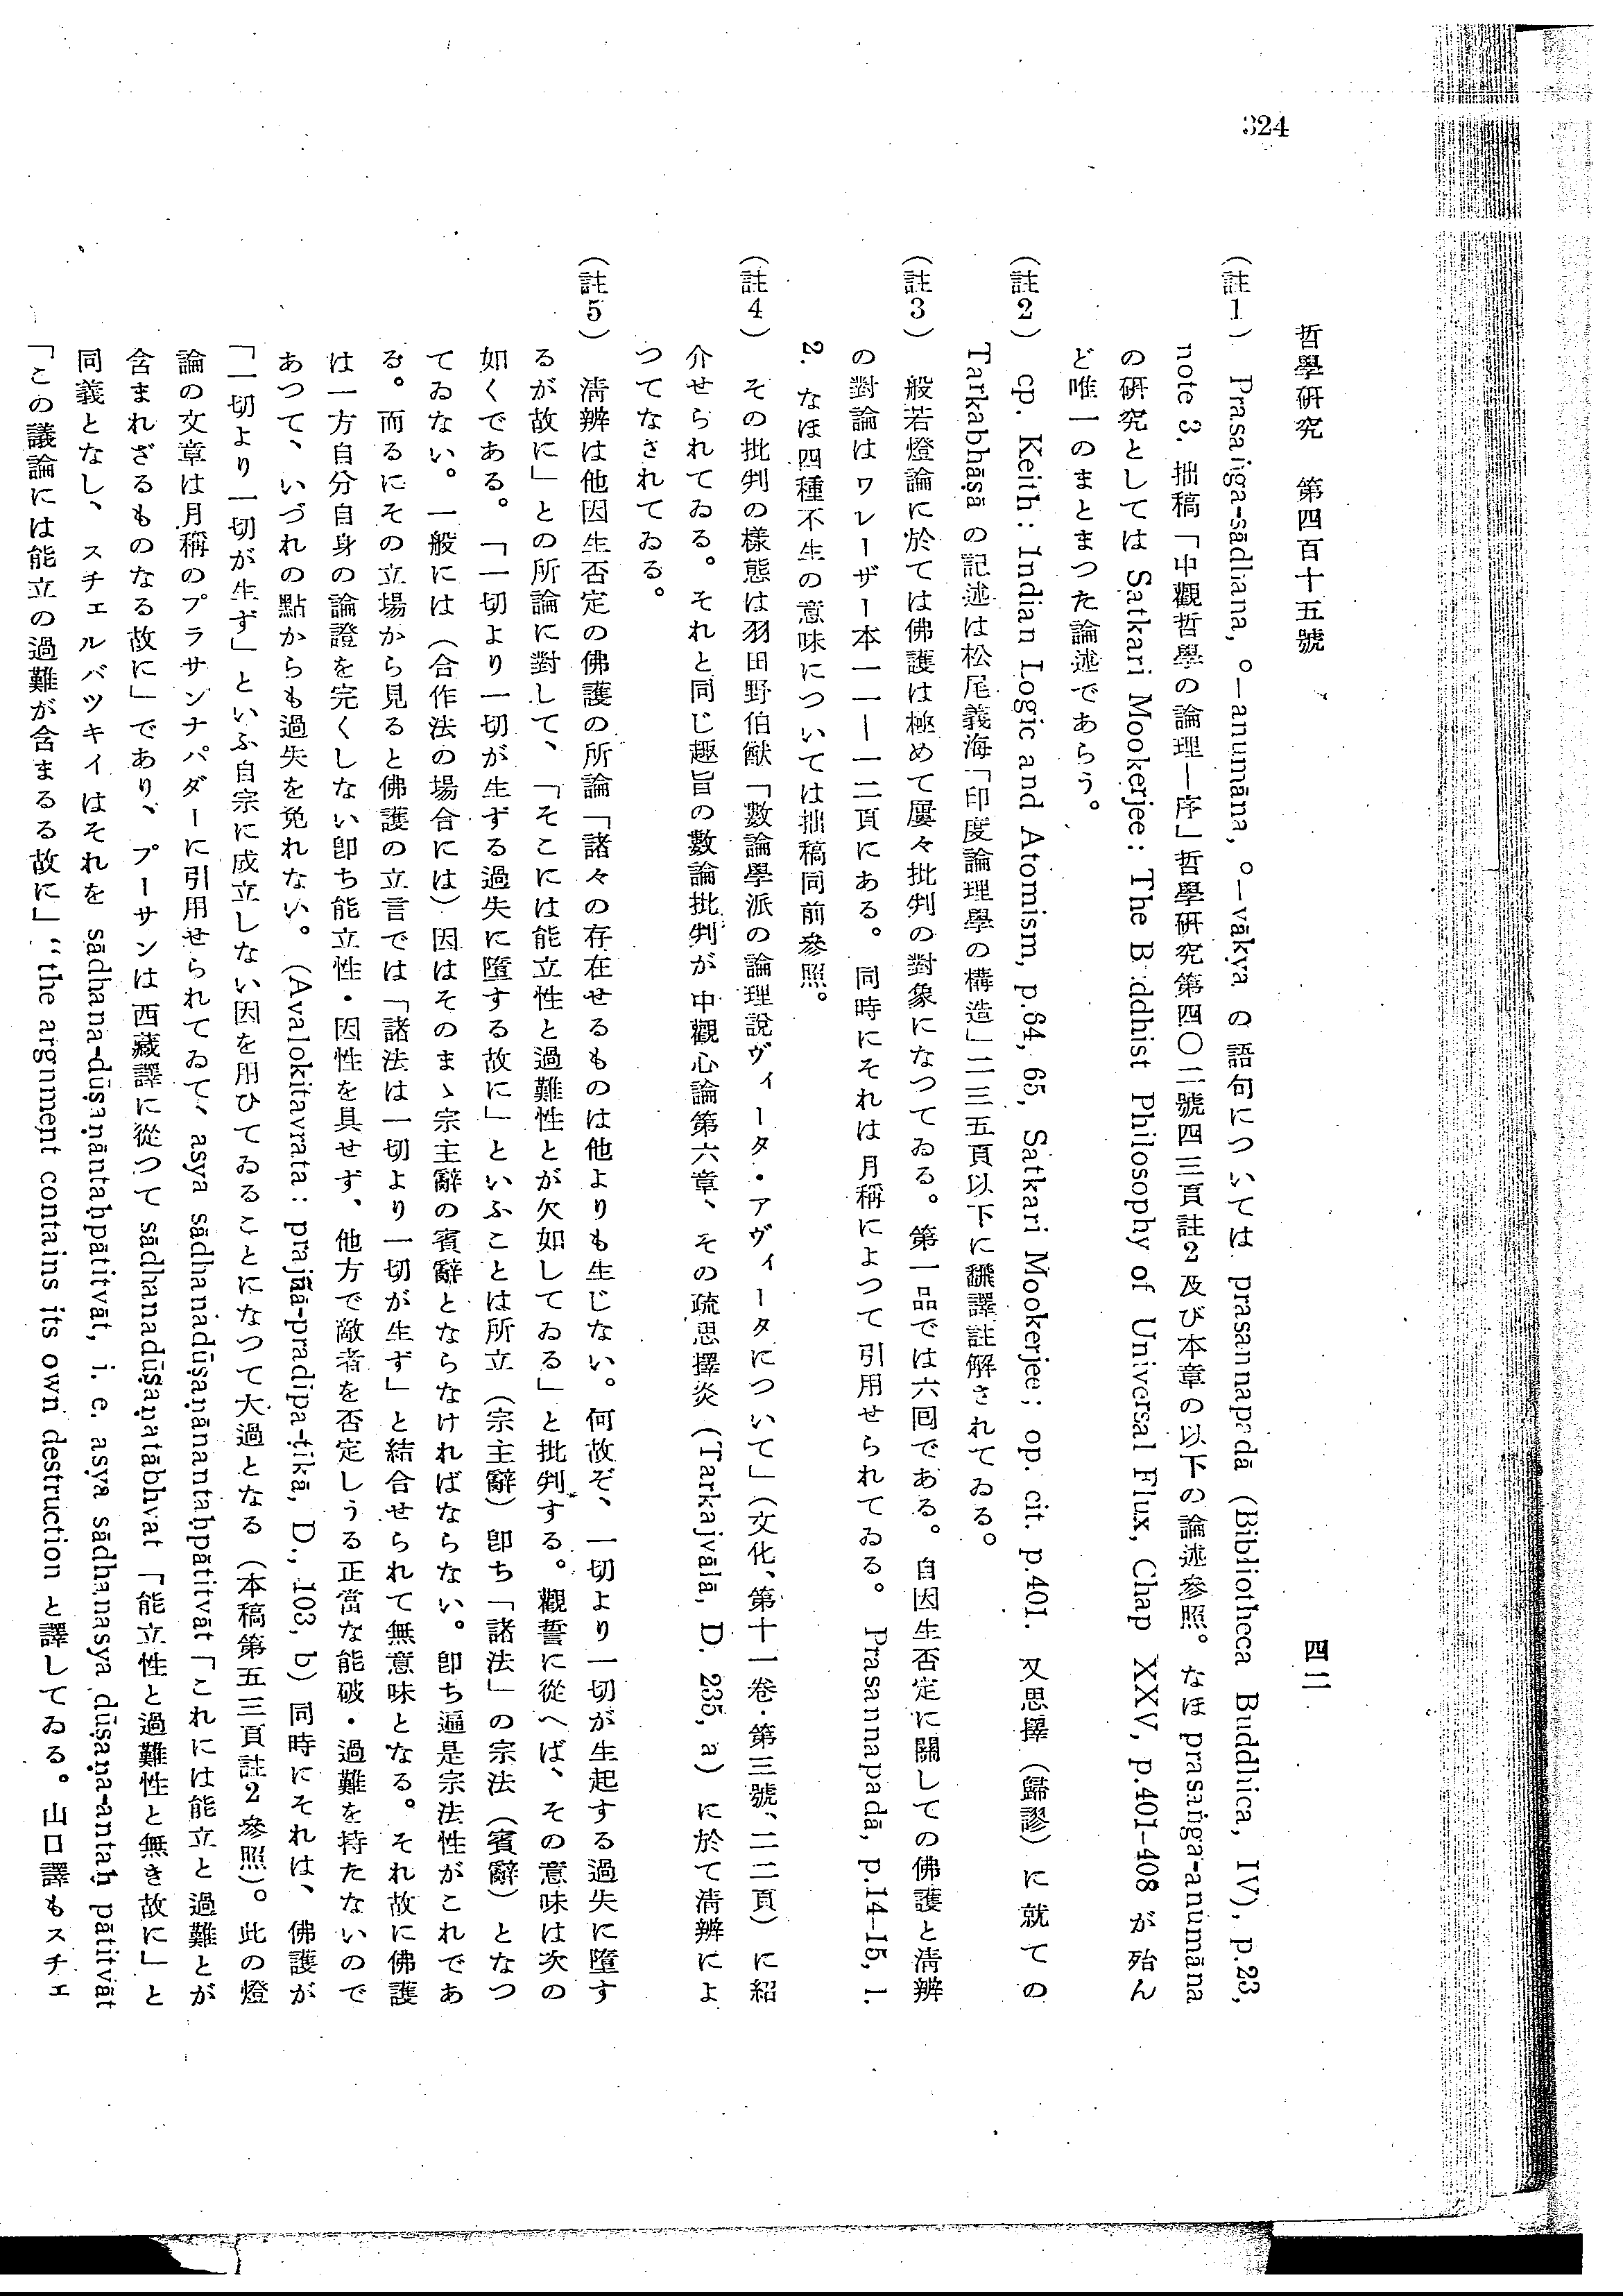 324
哲學硏究　第四百十五號　四二
（註1）　Prasaṅga-sādhana, ०—anumāna, ०—vākya の語句については prasannapadā (Bibliotheca Buddhica, IV), p.23,
note 3. 拙稿「中觀哲學の論理—序」哲學硏究第四〇二號四三頁註2及び本章の以下の論述參照。なほ prasaṅga-anumāna
の硏究としては Satkari Mookerjee: The Buddhist Philosophy of Universal Flux, Chap XXV, p.401-408 が殆ん
ど唯一のまとまつた論述であらう。
（註2）　cp. Keith: Indian Logic and Atomism, p.64, 65, Satkari Mookerjee; op. cit. p.401. 又思擇（歸謬）に就ての
Tarkabhāṣā の記述は松尾義海「印度論理學の構造」二三五頁以下に飜譯註解されてゐる。
（註3）　般若燈論に於ては佛護は極めて屢々批判の對象になつてゐる。第一品では六囘である。自因生否定に關しての佛護と淸辨
の對論はワレーザー本一一—一二頁にある。同時にそれは月稱によつて引用せられてゐる。 Prasannapadā, p.14-15, l.
2. なほ四種不生の意味については拙稿同前參照。
（註4）　その批判の樣態は羽田野伯猷「數論學派の論理說ヴィータ・アヴィータについて」（文化、第十一卷・第三號、二二頁）に紹
介せられてゐる。それと同じ趣旨の數論批判が中觀心論第六章、その疏思擇炎 (Tarkajvālā, D. 235, a) に於て淸辨によ
つてなされてゐる。
（註5）　淸辨は他因生否定の佛護の所論「諸々の存在せるものは他よりも生じない。何故ぞ、一切より一切が生起する過失に墮す
るが故に」との所論に對して、「そこには能立性と過難性とが欠如してゐる」と批判する。觀誓に從へば、その意味は次の
如くである。「一切より一切が生ずる過失に墮する故に」といふことは所立（宗主辭）卽ち「諸法」の宗法（賓辭）となつ
てゐない。一般には（合作法の場合には）因はそのまゝ宗主辭の賓辭とならなければならない。卽ち遍是宗法性がこれであ
る。而るにその立場から見ると佛護の立言では「諸法は一切より一切が生ず」と結合せられて無意味となる。それ故に佛護
は一方自分自身の論證を完くしない卽ち能立性・因性を具せず、他方で敵者を否定しうる正當な能破・過難を持たないので
あつて、いづれの點からも過失を免れない。 (Avalokitavrata: prajñā-pradīpa-ṭīkā, D., 103, b) 同時にそれは、佛護が
「一切より一切が生ず」といふ自宗に成立しない因を用ひてゐることになつて大過となる（本稿第五三頁註2參照）。此の燈
論の文章は月稱のプラサンナパダーに引用せられてゐて、asya sādhanadūṣaṇānantaḥpātitvāt「これには能立と過難とが
含まれざるものなる故に」であり、プーサンは西藏譯に從つて sādhanadūṣaṇatābhvat「能立性と過難性と無き故に」と
同義となし、スチェルバツキイはそれを sādhana-dūṣaṇāntaḥpātitvāt, i. e. asya sādhanasya dūṣaṇa-antaḥ pātitvāt
「この議論には能立の過難が含まるる故に」“the argnment contains its own destruction と譯してゐる。山口譯もスチェ